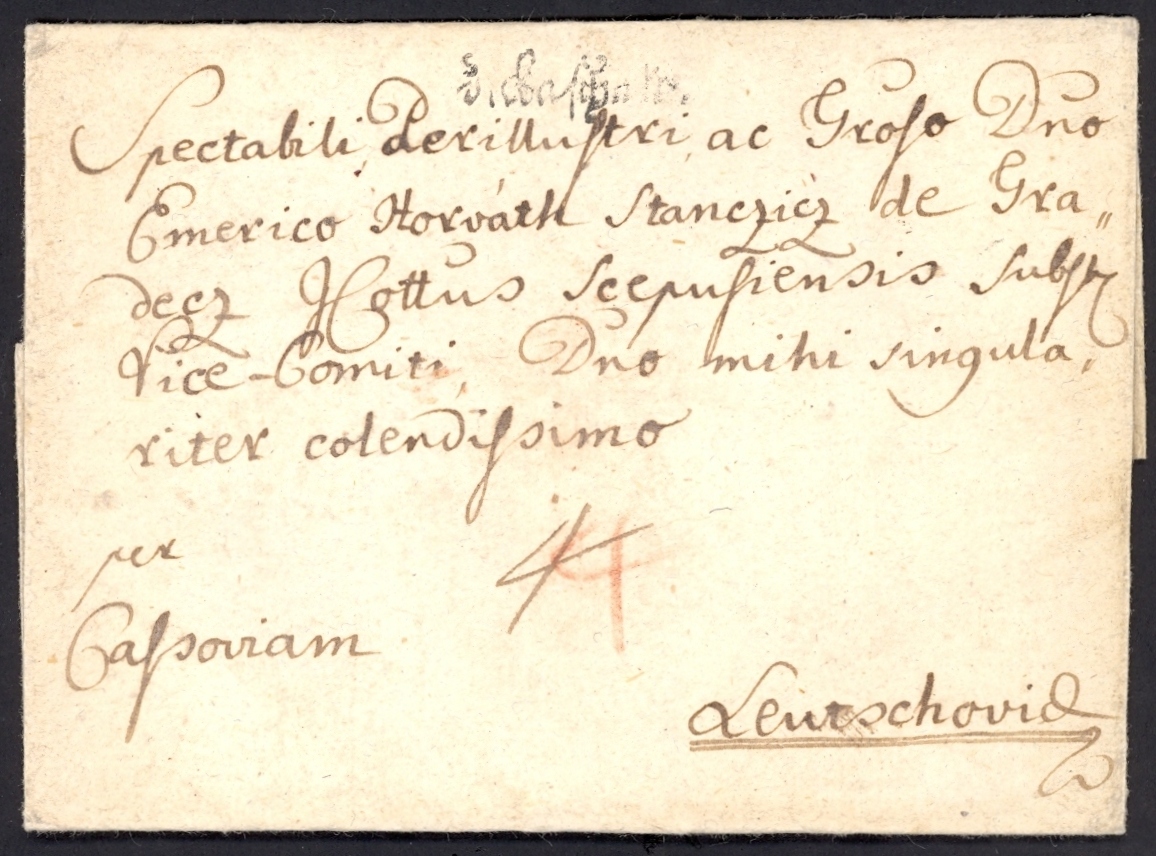 Spectabili, Perillustri, ac Groso Dno
Emerico Horváth Stanczicz de Gra„
decz JCottus Scepusiensis Substi
Vice-Comiti, Dno mihi singula,
riter colendissimo
4 4
per
Cassoviam
Leutschoviæ